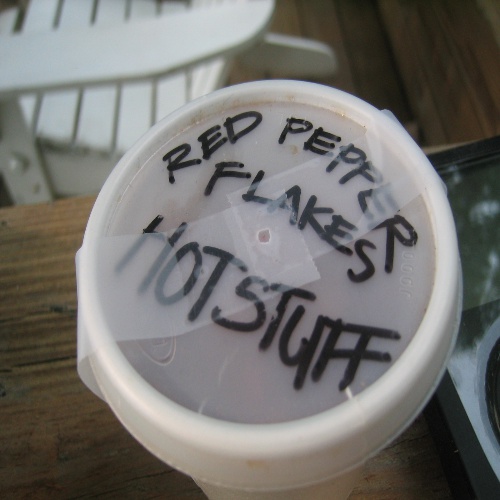 RED PEPPER
FLAKES
HOT STUFF